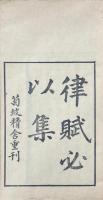 律賦必
以集
菊坡精舍重刊